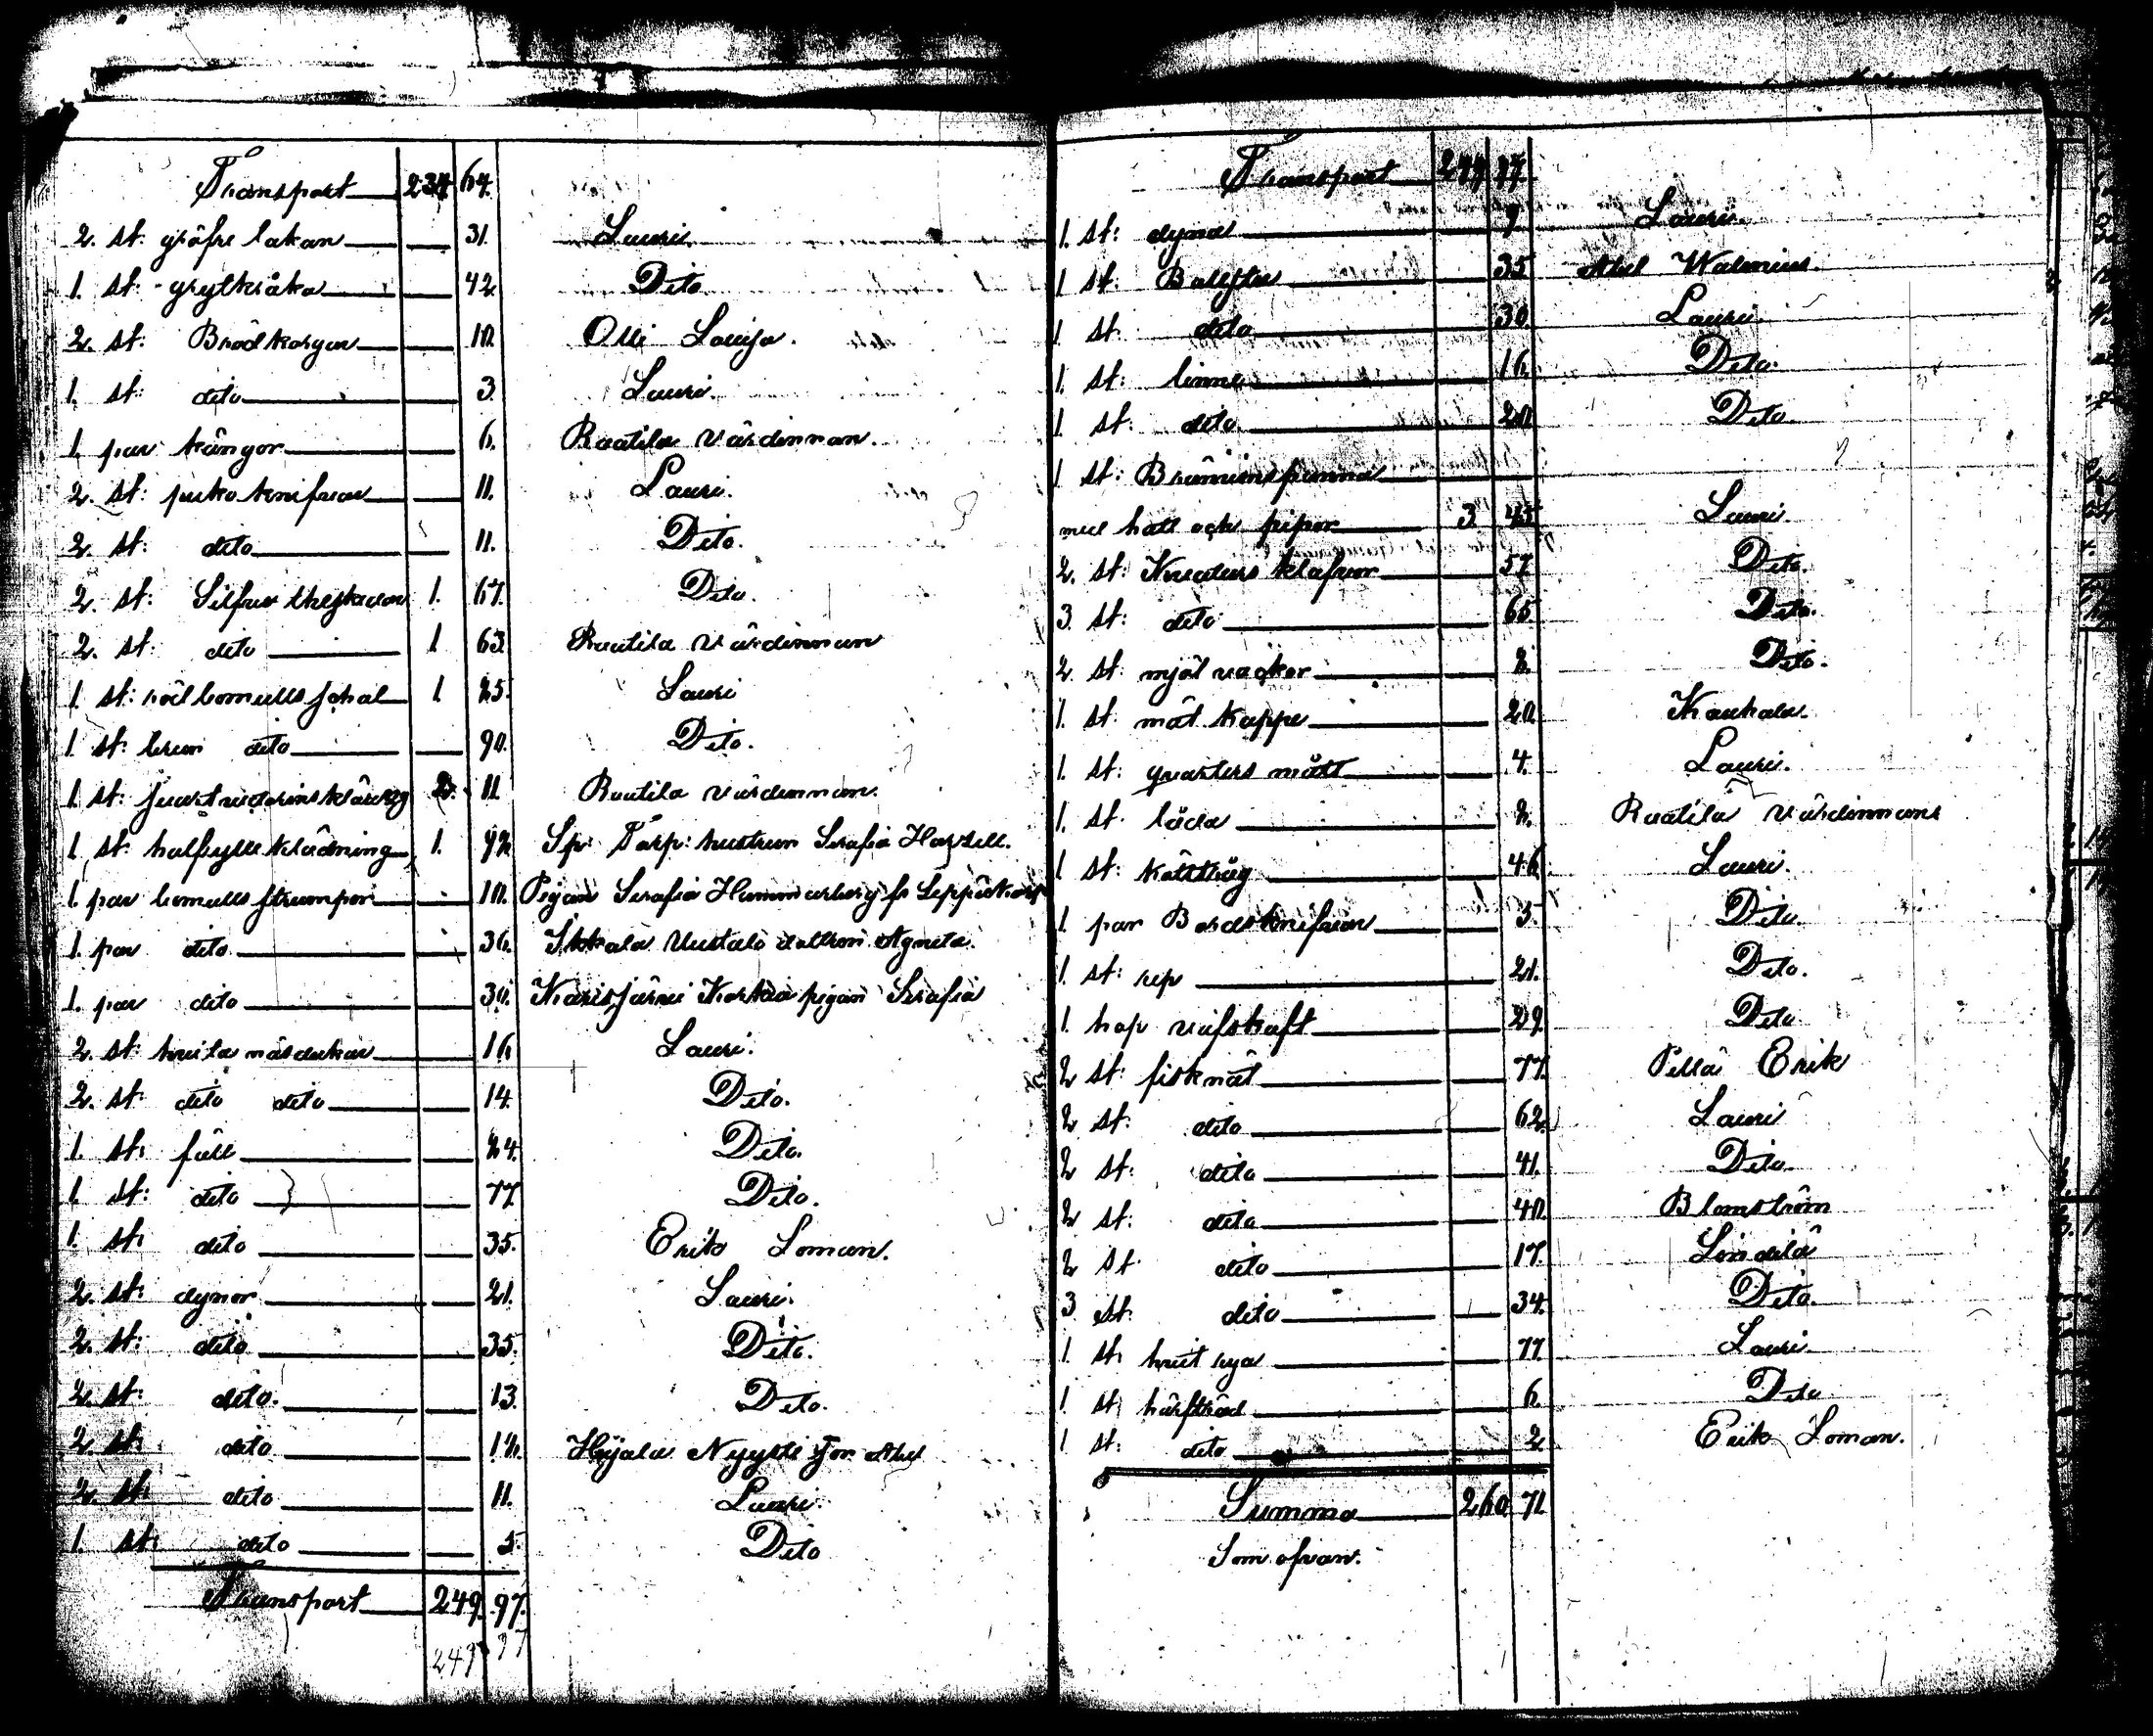 Transport 234 64.
2. st: gröfre lakan 31. Lauri.
1. st: grytkråka 42. Dito
2. st: Brödkorgar 10. Olli Louisa.
1. st: dito 3. Lauri.
1. par kängor 6. Raatila värdinnan.
2. st: puko knifvar 11. Lauri.
2. st: dito 11. Dito.
2. st: Silfver theskedar 1. 67. Dito.
2. st: dito 1 63. Raatila värdinnan
1. st: röd bomulls schal 1 25. Lauri
1. st: brun dito 90. Dito.
1. st: 2. 11. Raatila värdinnan.
1. st: halfylle klädning 1. 92. Sp: Torp: hustrun Serafia
1. par bomulls strumpor 10. Pigan Serafia Hammarberg fr
1. par dito 36. Uustalo dottren Agneta.
1. par dito 30. Karisjärvi pigan Serafia
2. st: hvita näsdukar 16. Lauri.
2. st: dito dito 14. Dito.
1. st: fäll 24. Dito.
1. st: dito 77. Dito.
1. st: dito 35. Erik Loman.
2. st: dynor 21. Lauri.
2. st: dito 35. Dito.
2. st: dito. 13. Dito.
2. st: dito 12. Abel
2. st: dito 11. Lauri.
1. st: dito 5. Dito
Transport 249. 97.
249 97
Transport 249 97.
1. st: dyna 9. Lauri.
1 st: 35 Abel Walenius.
1 st: dito 30. Lauri
1. st: linne 16. Dito.
1. st: dito 20. Dito
1 st: Brännvinspanna
med hatt och pipor 3. 45. Lauri.
2. st: Kreaturs klafvor 57. Dito.
3. st: dito 65. Dito.
2 st: mjöl vackor 2. Dito.
1. st: mât kappe 20. Kauhala.
1. st: quarters mått 4. Lauri.
1. st: låda 2. Raatila värdinnans
1 st: kötttråg 46. Lauri.
1 par Bordsknifvar 3. Dito
1 st: rep 21. Dito.
1. hop väfskaft 29. Dito
2 st: fisknät 77. Pellä Erik
2 st: dito 62. Lauri
2 st: dito 41. Dito.
2 st: dito 40. Blomström
2 st dito 17. Lindilä
3 st: dito 34. Dito.
1 st: hvit rya 77. Lauri.
1 st: 6. Dito
1 st: dito 2 Erik Loman.
Summa 260 71.
Som ofvan.